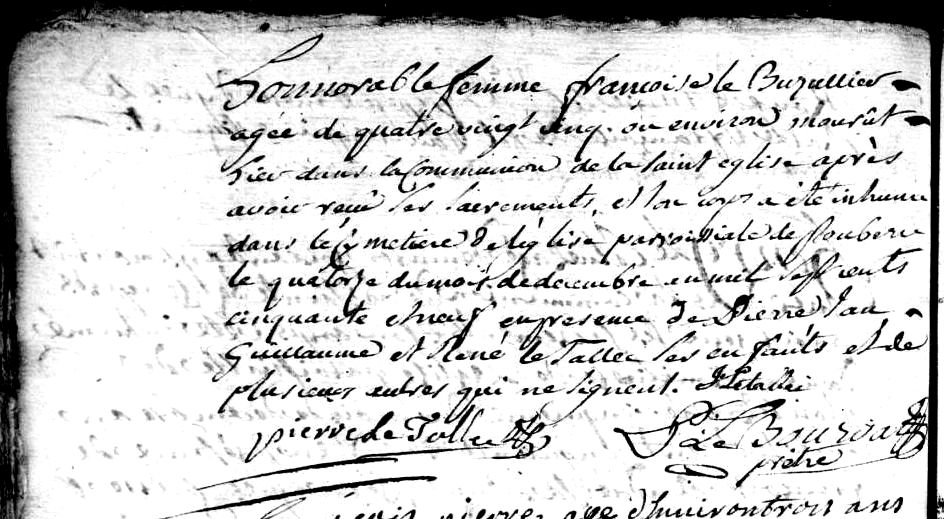 honnorable femme francoise le Buzullier
agée de quatre vingt cinq ou environ mourut
hier dans la Communion de la saint eglise après
avoir reçu les sacrements, et son corps a été inhumé
dans le cymetiere de l'église parroissiale de Plouberre
le quatorze du mois de decembre en mil sept cents
cinquante et neuf en presence de Pierre Jan
Guillaume et René le Tallec ses enfants et de
plusieurs autres qui ne signent. J Letallec
pierre le Tallec
Le Bourdat
prêtre
pierre age d'environ trois ans